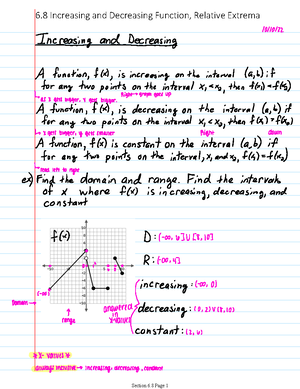 6.8 Increasing and Decreasing Function, Relative Extrema
10/10/22
Increasing and Decreasing
A function, f(x), is increasing on the interval (a,b) if
for any two points on the interval x₁ < x₂, then f(x₁) < f(x₂)
Right → graph goes up
x gets bigger, y gets bigger.
A function, f(x), is decreasing on the interval (a,b) if
for any two points on the interval x₁ < x₂, then f(x₁) > f(x₂)
x gets bigger, y gets smaller
Right down
A function, f(x) is constant on the interval (a,b) if
for any two points on the interval, x₁ and x₂, f(x₁) = f(x₂)
read left to right
ex) Find the domain and range. Find the intervals
of x where f(x) is increasing, decreasing, and
constant
f(x)
D: (-∞, 6] ∪ [8, 10]
R: (-∞, 4]
(-∞)
Domain
range
answered in x-values
increasing: (-∞, 0)
decreasing: (0, 2) ∪ (8, 10)
constant:
* X-values *
always increase → increasing, decreasing, constant
Section 6.8 Page 1